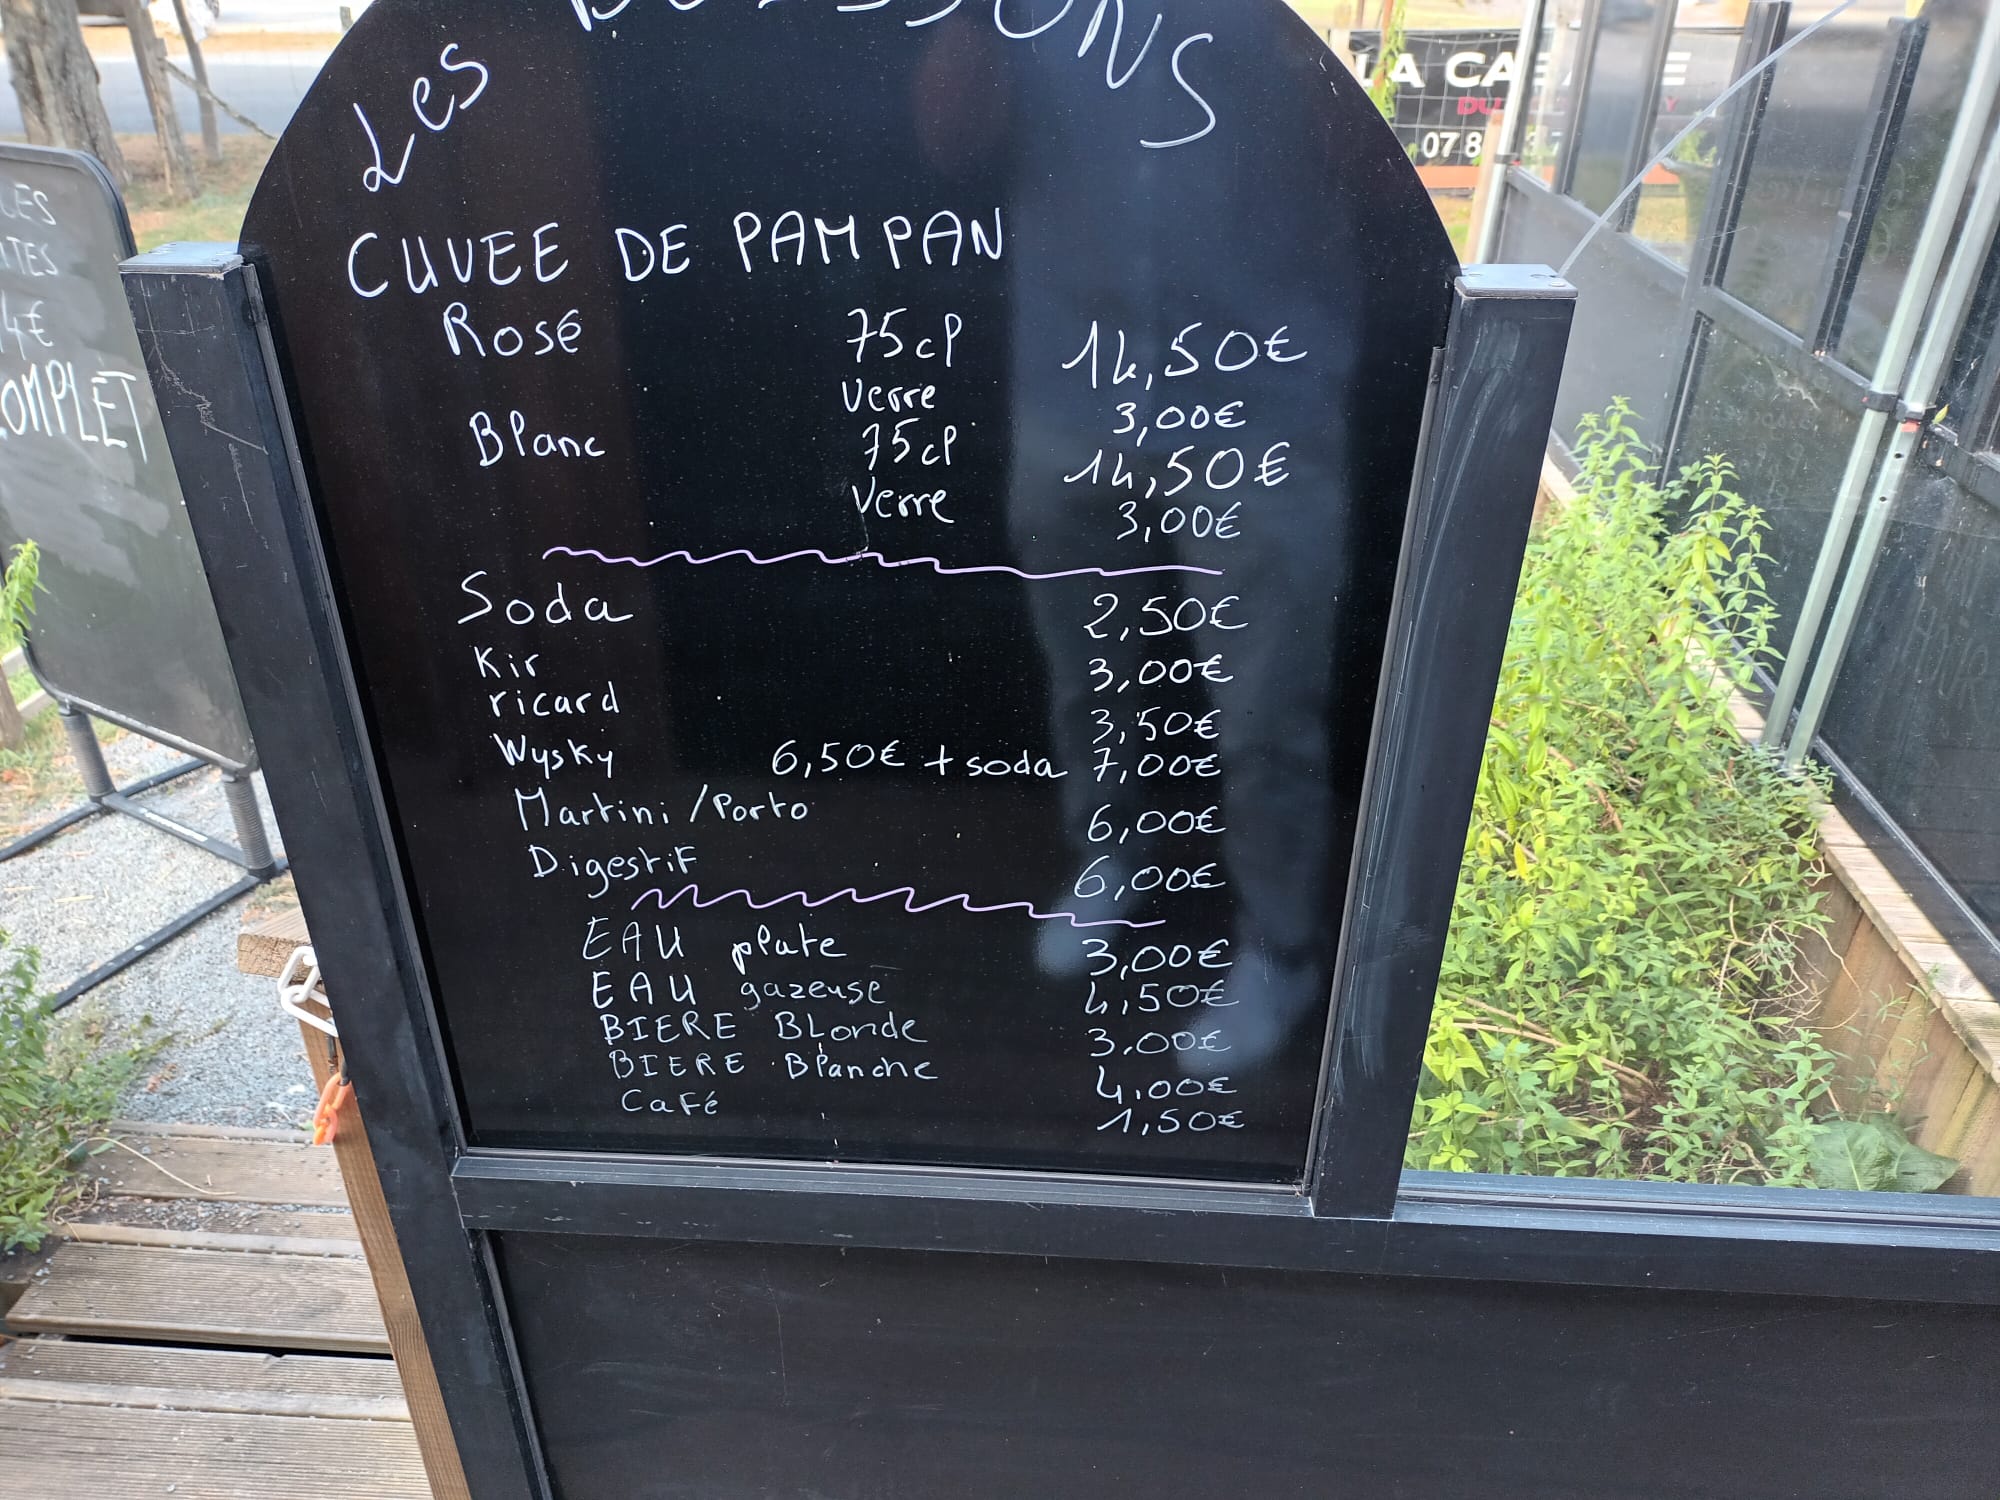 Les BOISSONS
CUVEE DE PAMPAN
Rosé 75cl 14,50€
Verre 3,00€
Blanc 75cl 14,50€
Verre 3,00€
Soda 2,50€
Kir 3,00€
ricard 3,50€
Wysky 6,50€ + soda 7,00€
Martini /Porto 6,00€
Digestif 6,00€
EAU plate 3,00€
EAU gazeuse 4,50€
BIERE BLonde 3,00€
BIERE Blanche 4,00€
Café 1,50€
4€
COMPLET
LA
07 8